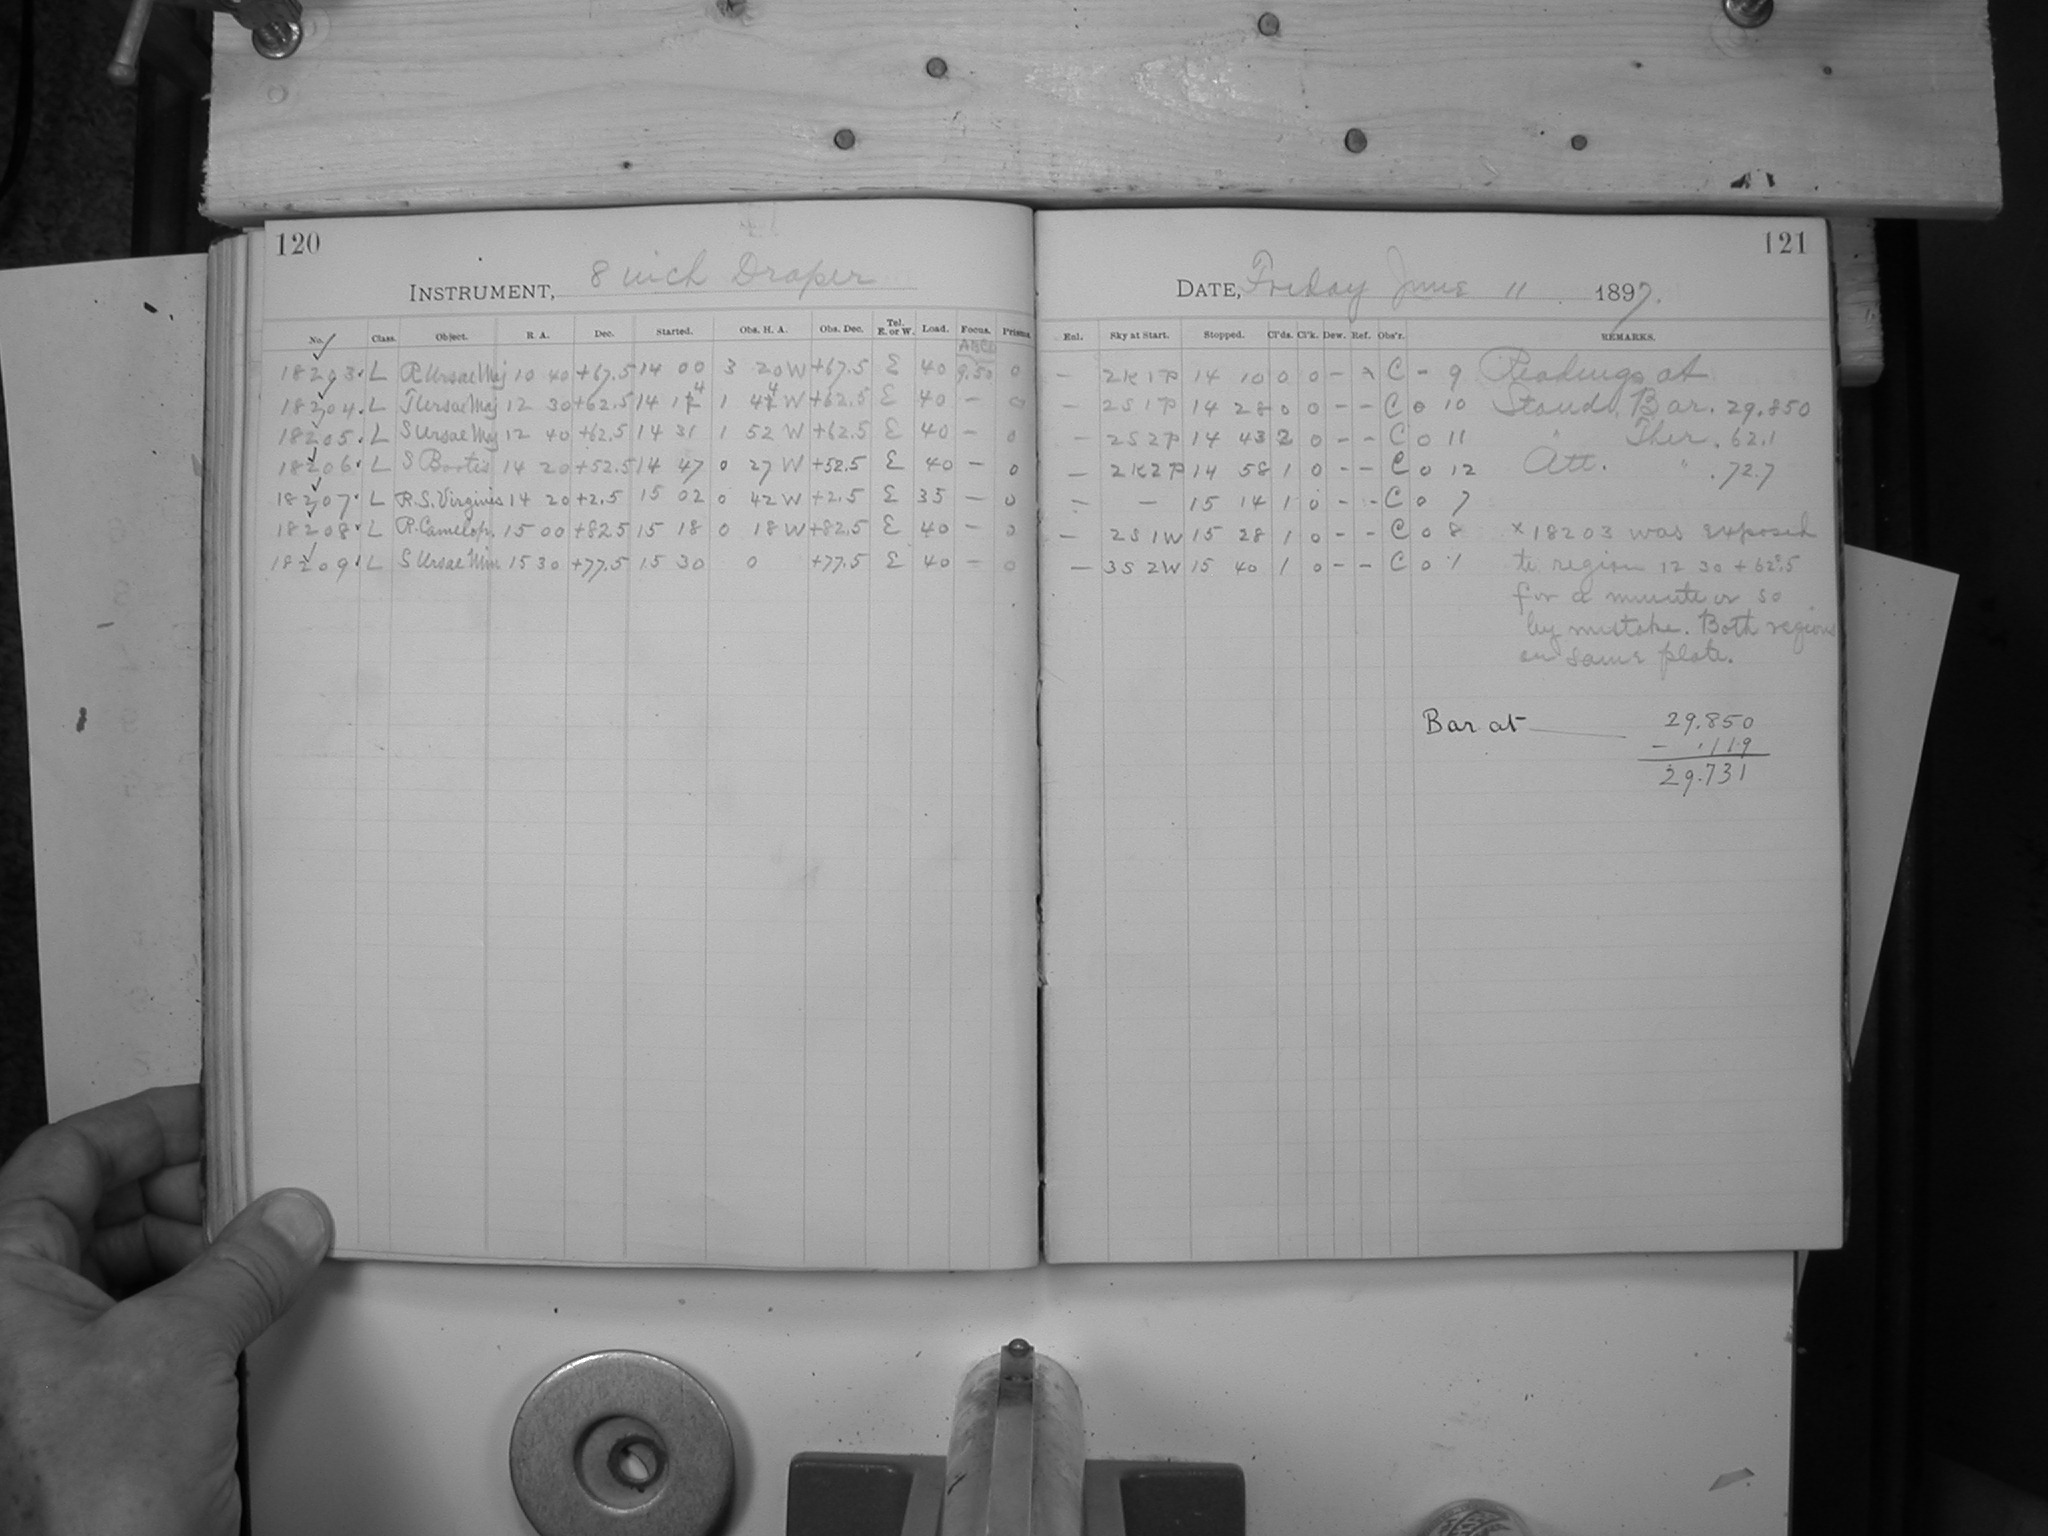 120
INSTRUMENT, 8 inch Draper
No. Class. Object. R. A. Dec. Started. Obs. H. A. Obs. Dec. Tel. E. or W. Load. Focus. Prisms.
ABCD
18203. L R Ursae Maj 10 40 +67.5 14 00 3 20 W +67.5 E 40 9.50 0
18204. L T Ursae Maj 12 30 +62.5 14 14 1 44 W +62.5 E 40 – 0
18205. L S Ursae Maj 12 40 +62.5 14 31 1 52 W +62.5 E 40 – 0
18206. L S Bootis 14 20 +52.5 14 47 0 27 W +52.5 E 40 – 0
18207. L R.S. Virginis 14 20 +2.5 15 02 0 42 W +2.5 E 35 – 0
18208. L R. Camelop. 15 00 +82.5 15 18 0 18 W +82.5 E 40 – 0
18209. L S Ursae Min 15 30 +77.5 15 30 0 +77.5 E 40 – 0
121
DATE, Friday June 11 1897.
Enl. Sky at Start. Stopped. Cl'ds. Cl'k. Dew. Ref. Obs'r. REMARKS.
– 2K1P 14 10 0 0 – C – 9 Readings at
– 2S1P 14 28 0 0 – – C 0 10 Stand. Bar. 29.850
– 2S2P 14 43 2 0 – – C 0 11 " Ther. 62.1
– 2K2P 14 58 1 0 – – C 0 12 Att. " .72.7
– – 15 14 1 0 – – C 0 7
– 2S1W 15 28 1 0 – – C 0 8 × 18203 was exposed
– 3S2W 15 40 1 0 – – C 0 1 to region 12 30 + 62°.5
for a minute or so
by mistake. Both regions
on same plate.
Bar at 29.850
– .119
29.731